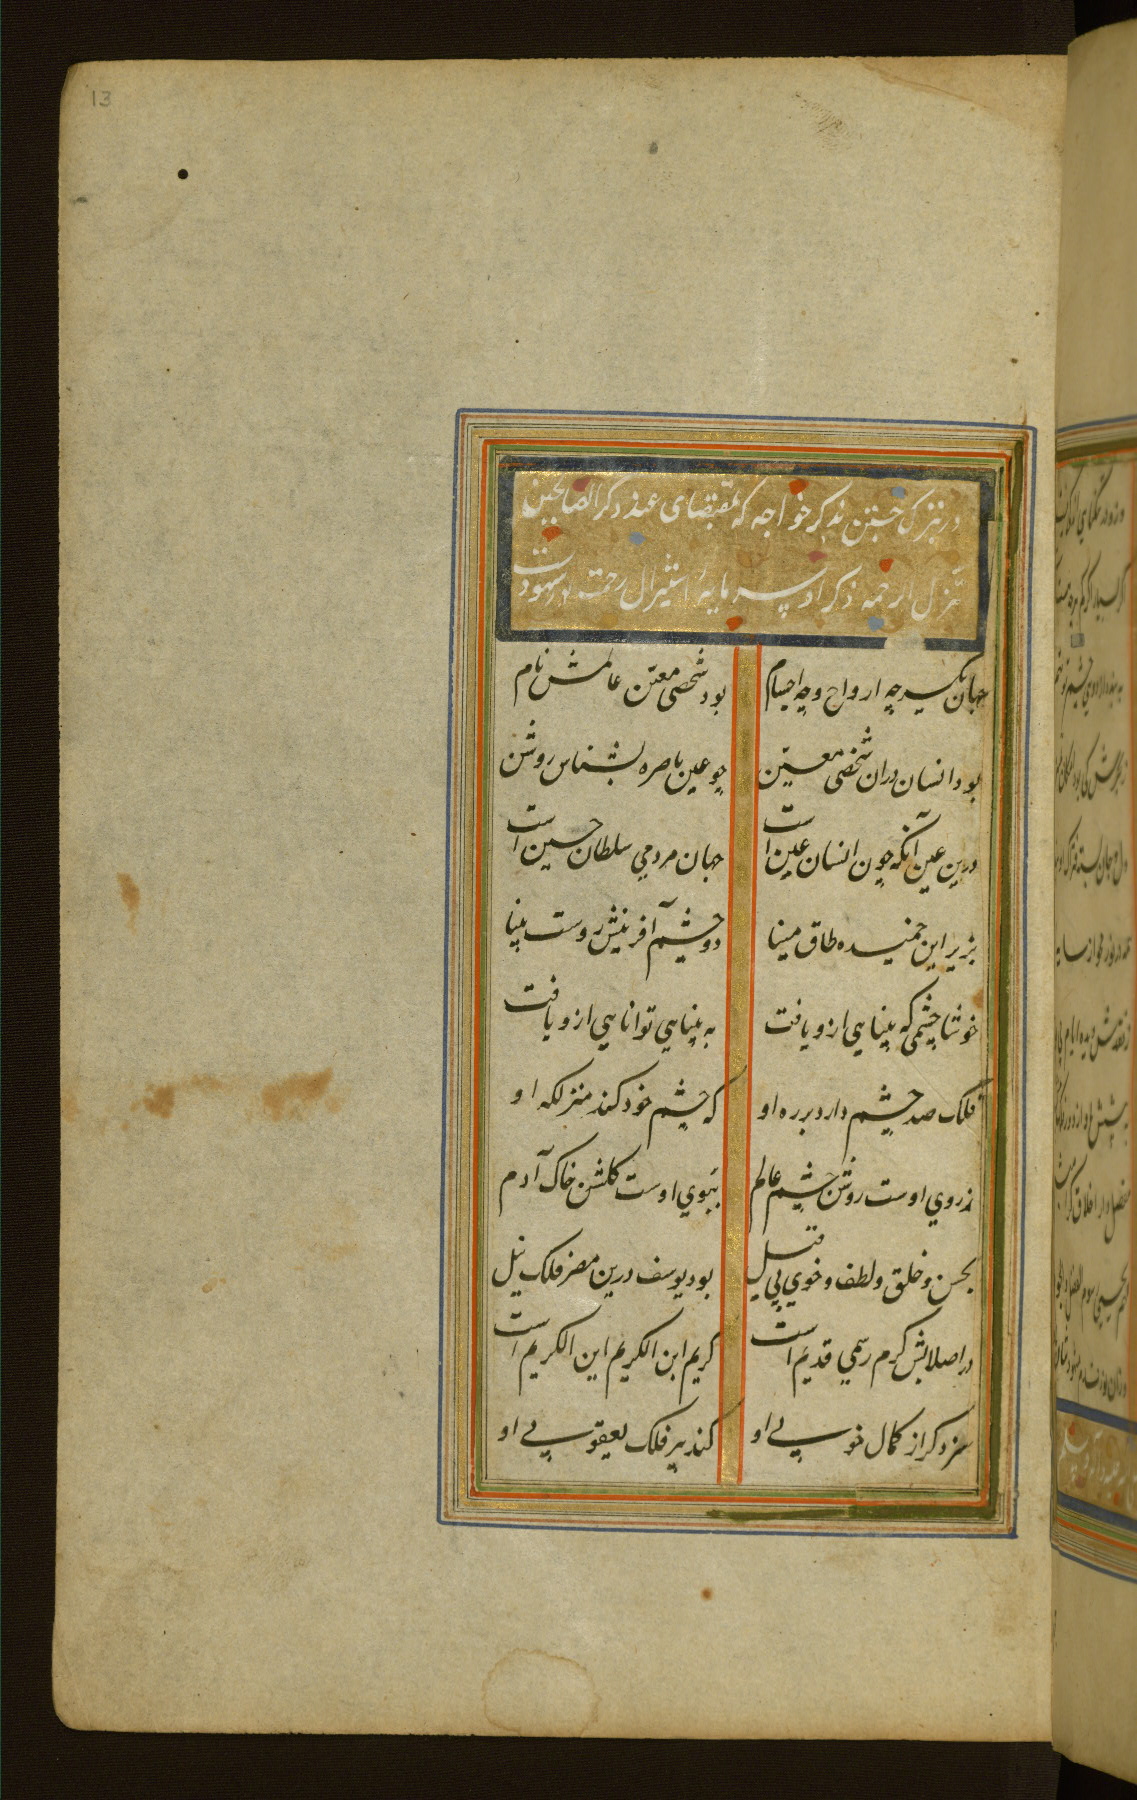 13
در تبرک جستن بذکر خواجه که بمقتضای عند ذکر الصالحین
تنزل الرحمه ذکر او سرمایهٔ استنزال رحمت
جهان یکسر چه ارواح و چه اجسام
بود شخصی معین عالمش نام
بود انسان دران شخص معین
چو عین باصره بشناس روشن
درین عین آنکه چون انسان عین است
جهان مردمی سلطان حسین است
بزیر این خمیده طاق مینا
دو چشم آفرینش زوست بینا
خوشا چشمی که بینایی ازو یافت
به بینایی توانایی ازو یافت
فلک صد چشم دارد بر ره او
که چشم خود کند منزلگه او
ز روی اوست روشن چشم عالم
ببوی اوست گلشن خاک آدم
بحسن و خلق و لطف و خوی بی قیل
بود یوسف درین مصر فلک نیل
در اصلابش کرم رسمی قدیم است
کریم ابن الکریم ابن الکریم است
سزد گر از کمال خوبی او
کند پیر فلک یعقوبی او